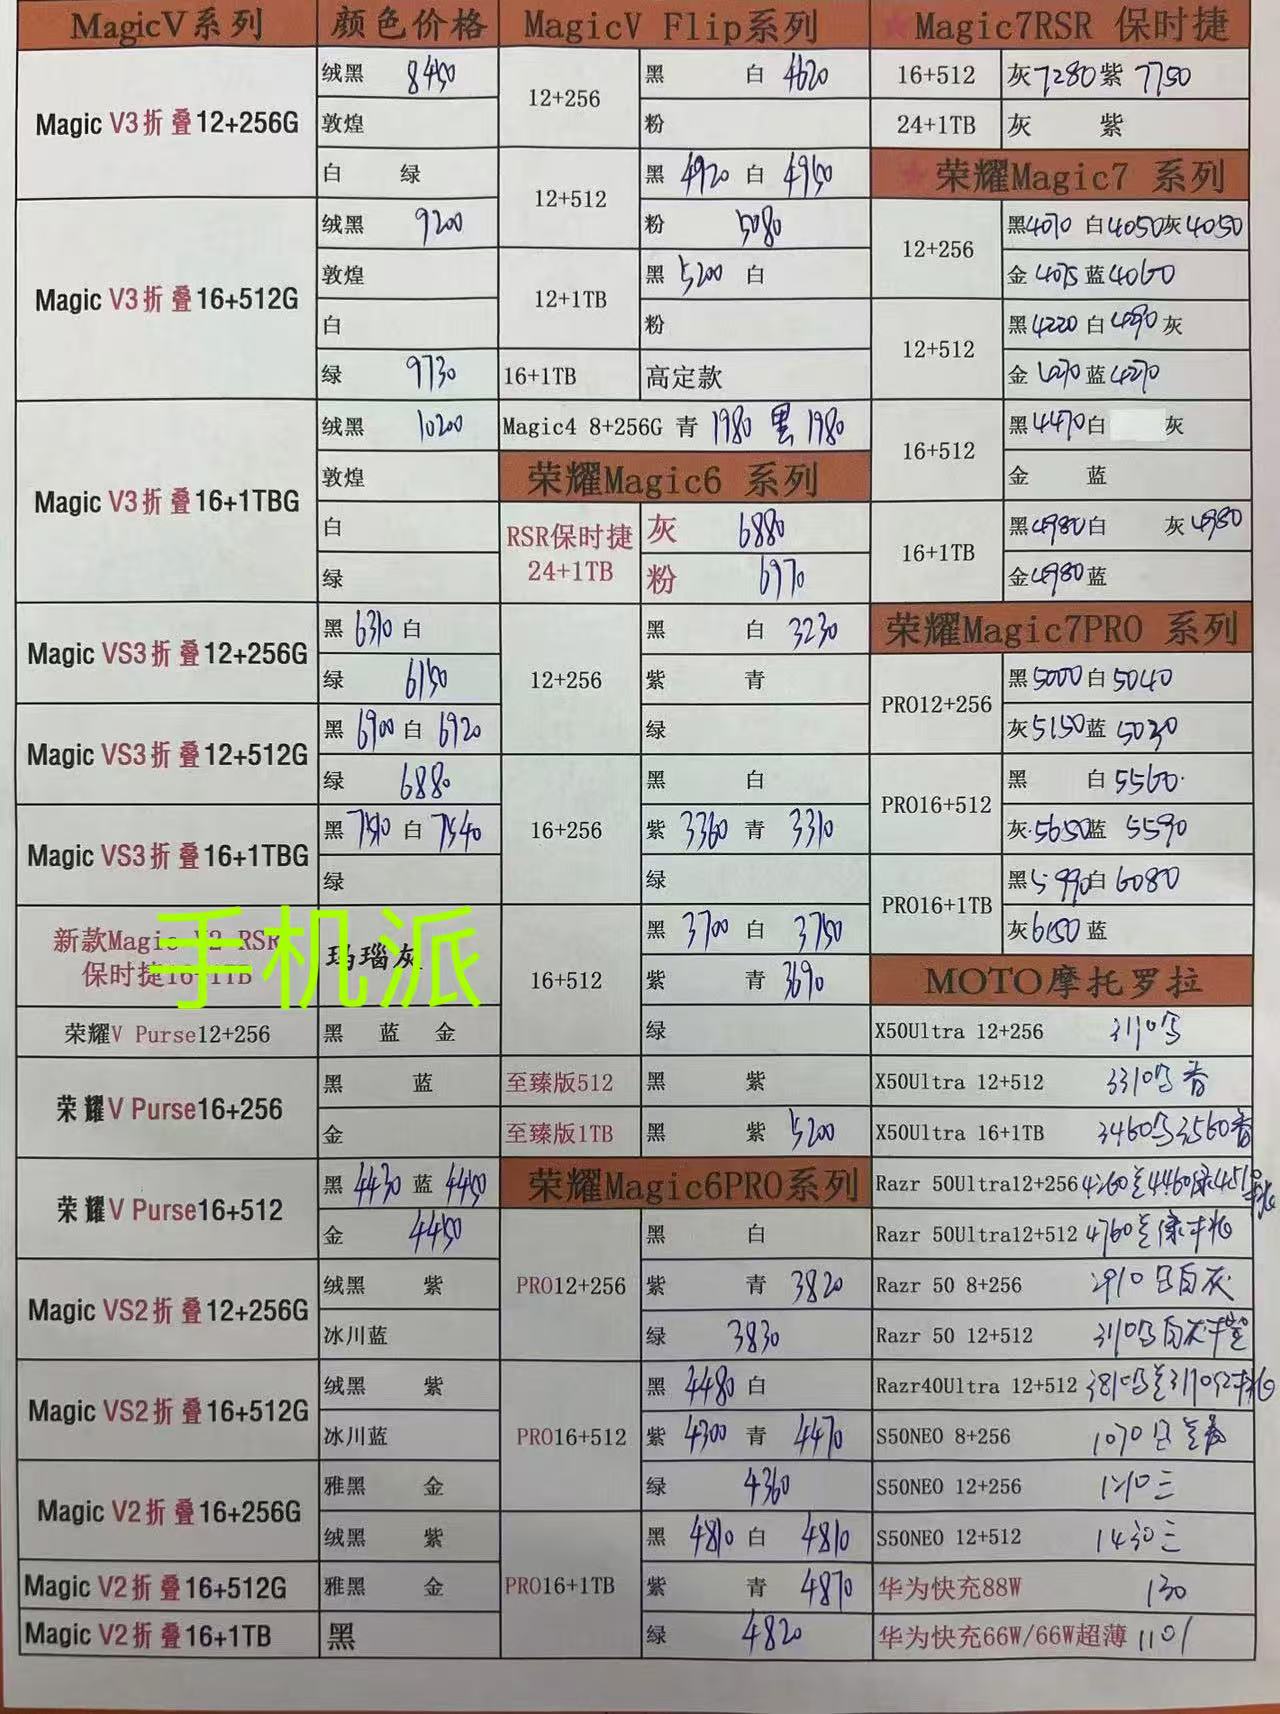 MagicV系列 颜色价格
Magic V3折叠12+256G
绒黑 8450
敦煌
白 绿
Magic V3折叠16+512G
绒黑 9200
敦煌
白
绿 9730
Magic V3折叠16+1TBG
绒黑 10200
敦煌
白
绿
Magic VS3折叠12+256G
黑 6310 白
绿 6150
Magic VS3折叠12+512G
黑 6900 白 6920
绿 6880
Magic VS3折叠16+1TBG
黑 7510 白 7540
绿
新款Magic V2 RSR
保时捷16+1TB
玛瑙灰
手机派
荣耀V Purse12+256
黑 蓝 金
荣耀V Purse16+256
黑 蓝
金
荣耀V Purse16+512
黑 4430 蓝 4450
金 4450
Magic VS2折叠12+256G
绒黑 紫
冰川蓝
Magic VS2折叠16+512G
绒黑 紫
冰川蓝
Magic V2折叠16+256G
雅黑 金
绒黑 紫
Magic V2折叠16+512G
雅黑 金
Magic V2折叠16+1TB
黑
MagicV Flip系列
12+256
黑 白 4620
粉
12+512
黑 4920 白 4950
粉 5080
12+1TB
黑 5200 白
粉
16+1TB 高定款
Magic4 8+256G 青 1980 黑 1980
荣耀Magic6 系列
RSR保时捷
24+1TB
灰 6880
粉 6970
12+256
黑 白 3230
紫 青
绿
16+256
黑 白
紫 3360 青 3310
绿
16+512
黑 3700 白 3750
紫 青 3690
绿
至臻版512 黑 紫
至臻版1TB 黑 紫 5200
荣耀Magic6PRO系列
PRO12+256
黑 白
紫 青 3820
绿 3830
PRO16+512
黑 4480 白
紫 4300 青 4470
绿 4360
PRO16+1TB
黑 4810 白 4810
紫 青 4870
绿 4820
Magic7RSR 保时捷
16+512 灰 7280 紫 7750
24+1TB 灰 紫
荣耀Magic7 系列
12+256
黑4070 白4050灰4050
金 4075 蓝4060
12+512
黑4220 白4290灰
金 4270 蓝4270
16+512
黑4470白 灰
金 蓝
16+1TB
黑4980白 灰4980
金4980蓝
荣耀Magic7PRO 系列
PRO12+256
黑5000白5040
灰5150蓝 5030
PRO16+512
黑 白5560
灰5650蓝 5590
PRO16+1TB
黑5990白6080
灰6150蓝
MOTO摩托罗拉
X50Ultra 12+256 3190
X50Ultra 12+512 3310
X50Ultra 16+1TB 3460 3560
Razr 50Ultra12+256 4260 4460绿
Razr 50Ultra12+512 4760
Razr 50 8+256 2910 白灰
Razr 50 12+512 3110 白灰
Razr40Ultra 12+512
S50NEO 8+256 1070
S50NEO 12+256 1210三
S50NEO 12+512 1430三
华为快充88W 130
华为快充66W/66W超薄 110/